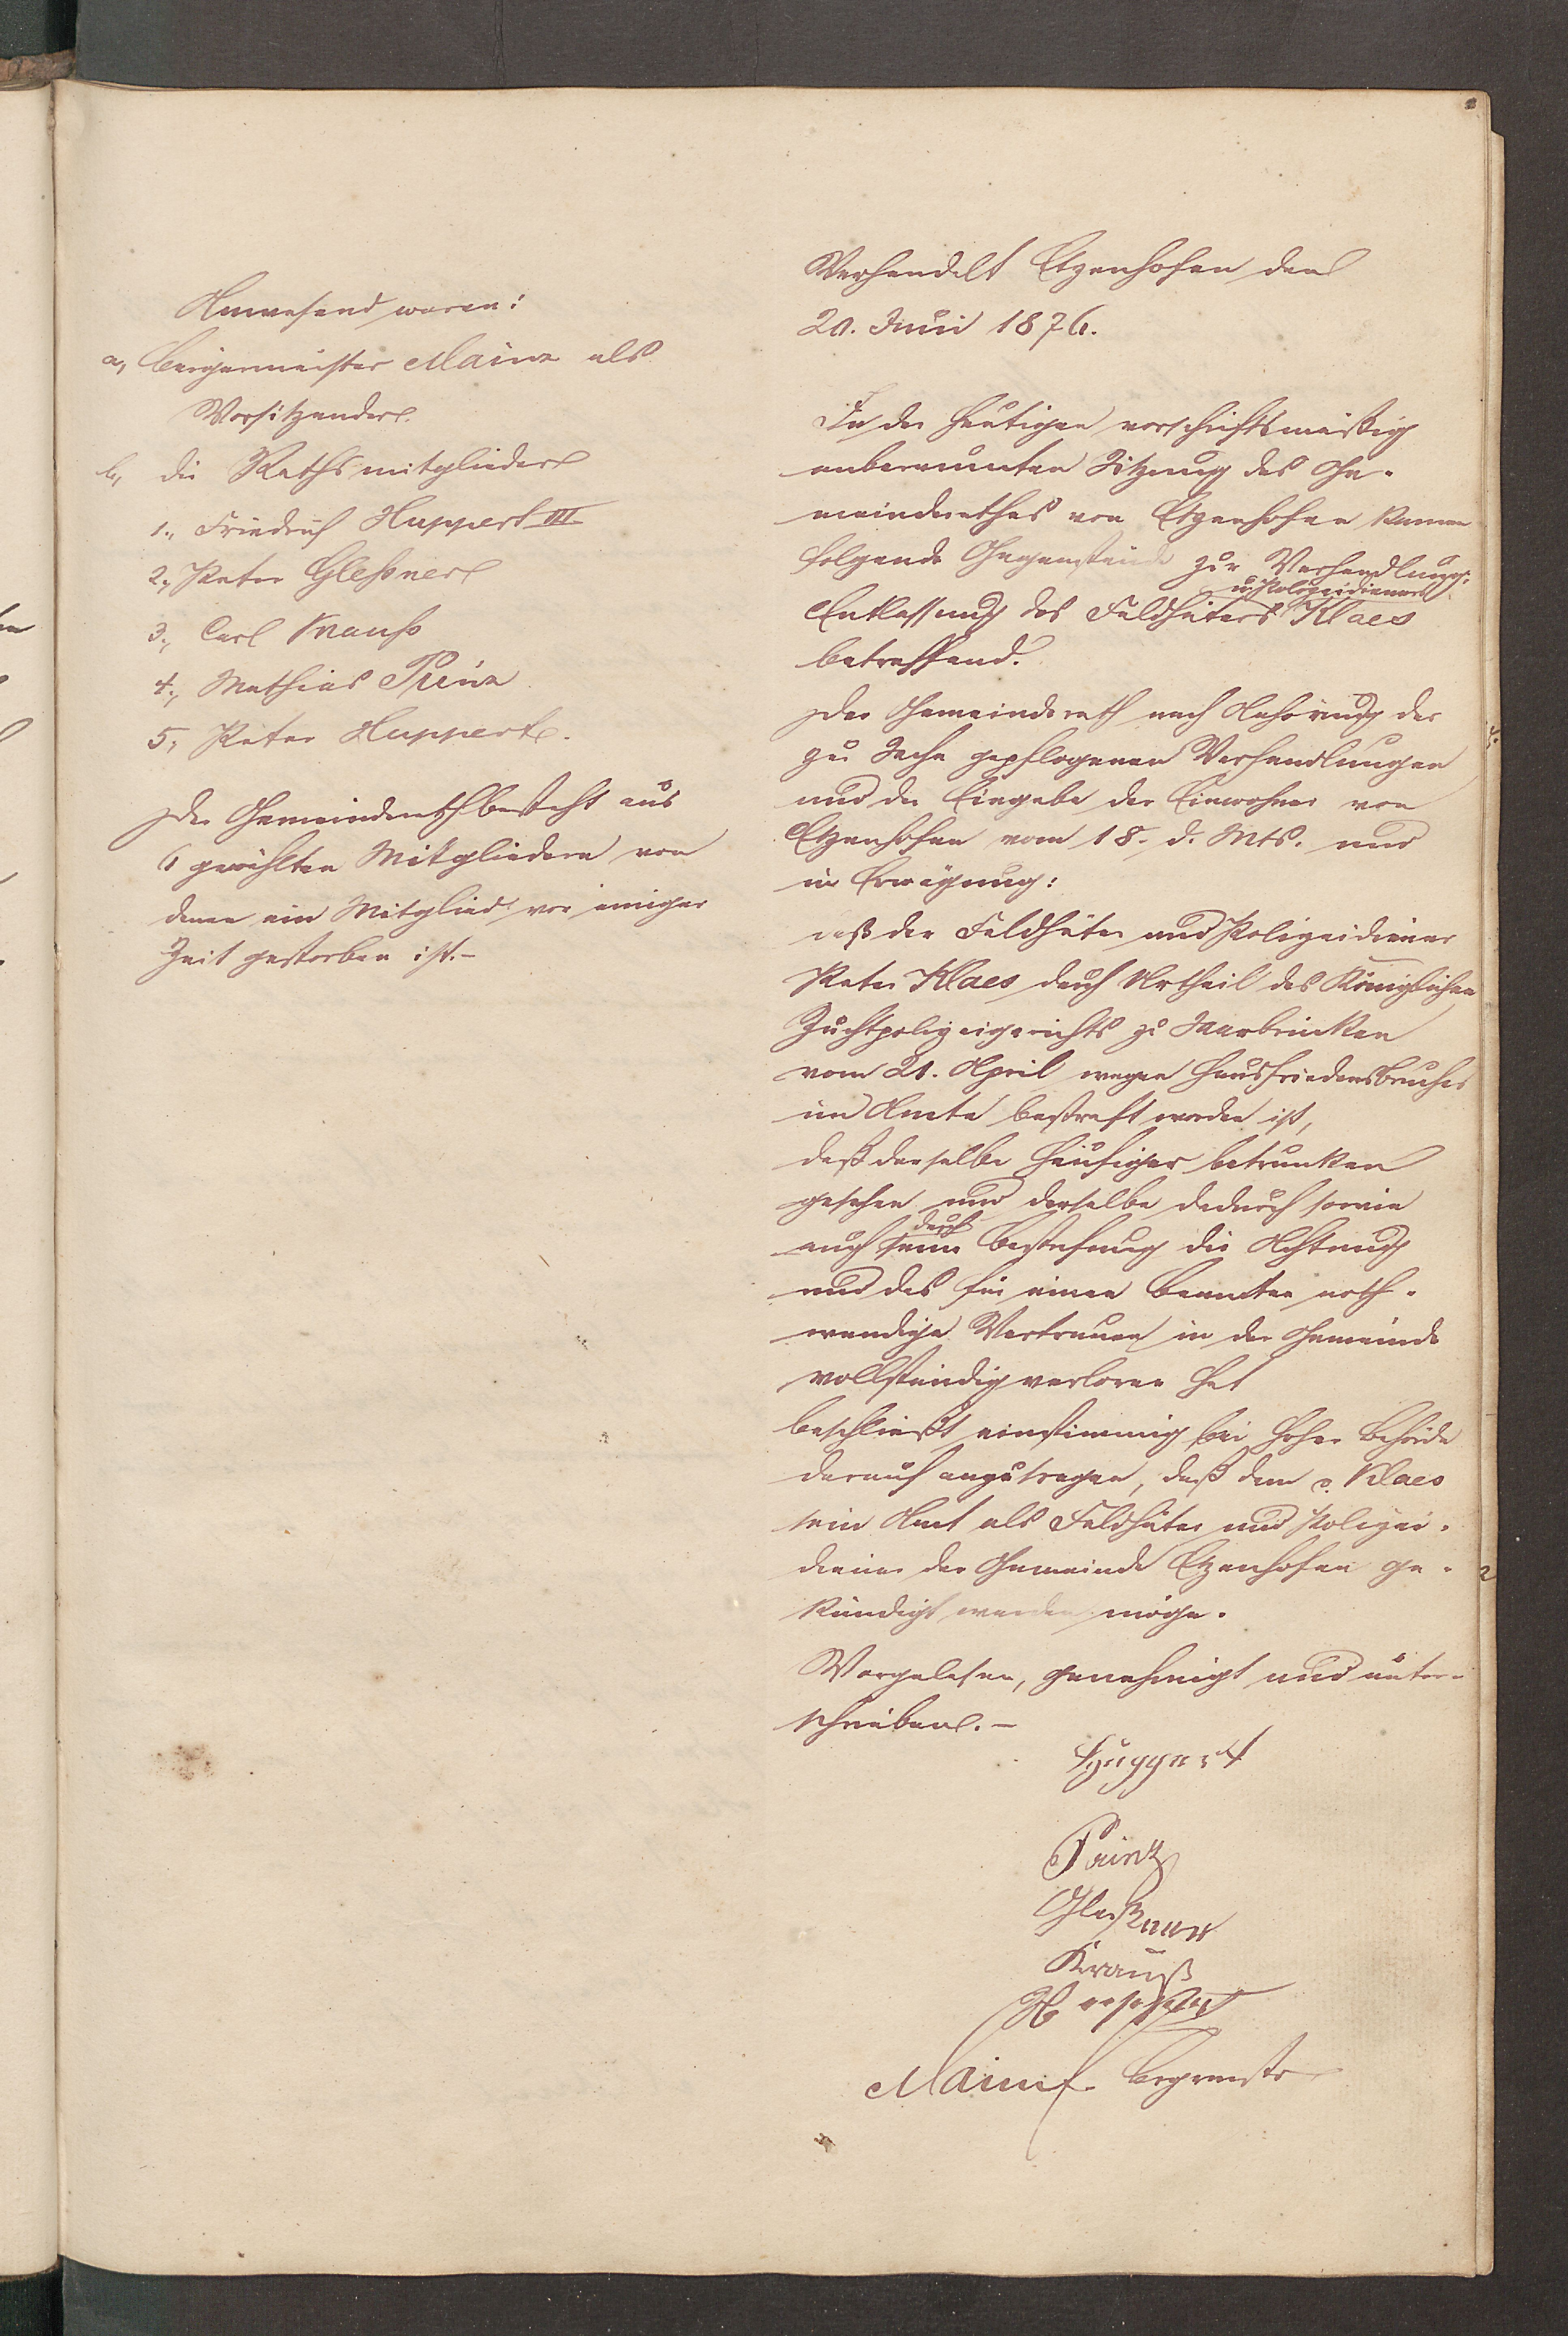 Anwesend waren:
a, Bürgermeister Mainz als
Vorsitzender.
b, die Rathsmitglieder
1., Friedrich Huppert III
2., Peter Gleßner
3., Carl Krauß
4., Mathias Prinz
5, Peter Huppert.
Der Gemeinderath besteht aus
6 gewählten Mitgliedern von
denen ein Mitglied vor einiger
Zeit gestorben ist.-
Verhandelt Etzenhofen den
20. Juni 1876.
In der heutigen vorschriftsmäßig
anberaumten Sitzung des Ge-
meinderathes von Etzenhofen kamen
folgende Gegenstände zur Verhandlung:
u. Polizeidieners
Entlassung des Feldhüters Klaes
betreffend.
Der Gemeinderath nach Anhörung der
zur Sache gepflogenen Verhandlungen
und der Eingabe der Einwohner von
Etzenhofen vom 18. d. Mts. und
in Erwägung:
daß der Feldhüter und Polizeidiener
Peter Klaes durch Urtheil des Königlichen
Zuchtpolizeigerichts zu Saarbrücken
vom 21. April wegen Hausfriedensbruches
im Amte bestraft worden ist,
daß derselbe häufiger betrunken
gesehen und derselbe dadurch sowie
durch
auch seine Bestrafung die Achtung
und das für einen Beamten noth-
wendige Vertrauen in der Gemeinde
vollständig verloren hat
beschließt einstimmig bei hoher Behörde
darauf anzutragen, daß dem p. Klaes
sein Amt als Feldhüter und Polizei-
diener der Gemeinde Etzenhofen ge-
kündigt werden möge.
Vorgelesen, genehmigt und unter-
schrieben.-
Huppert
Prinz
Gleßner
Krauß
Huppert
Mainz Bürgermeister